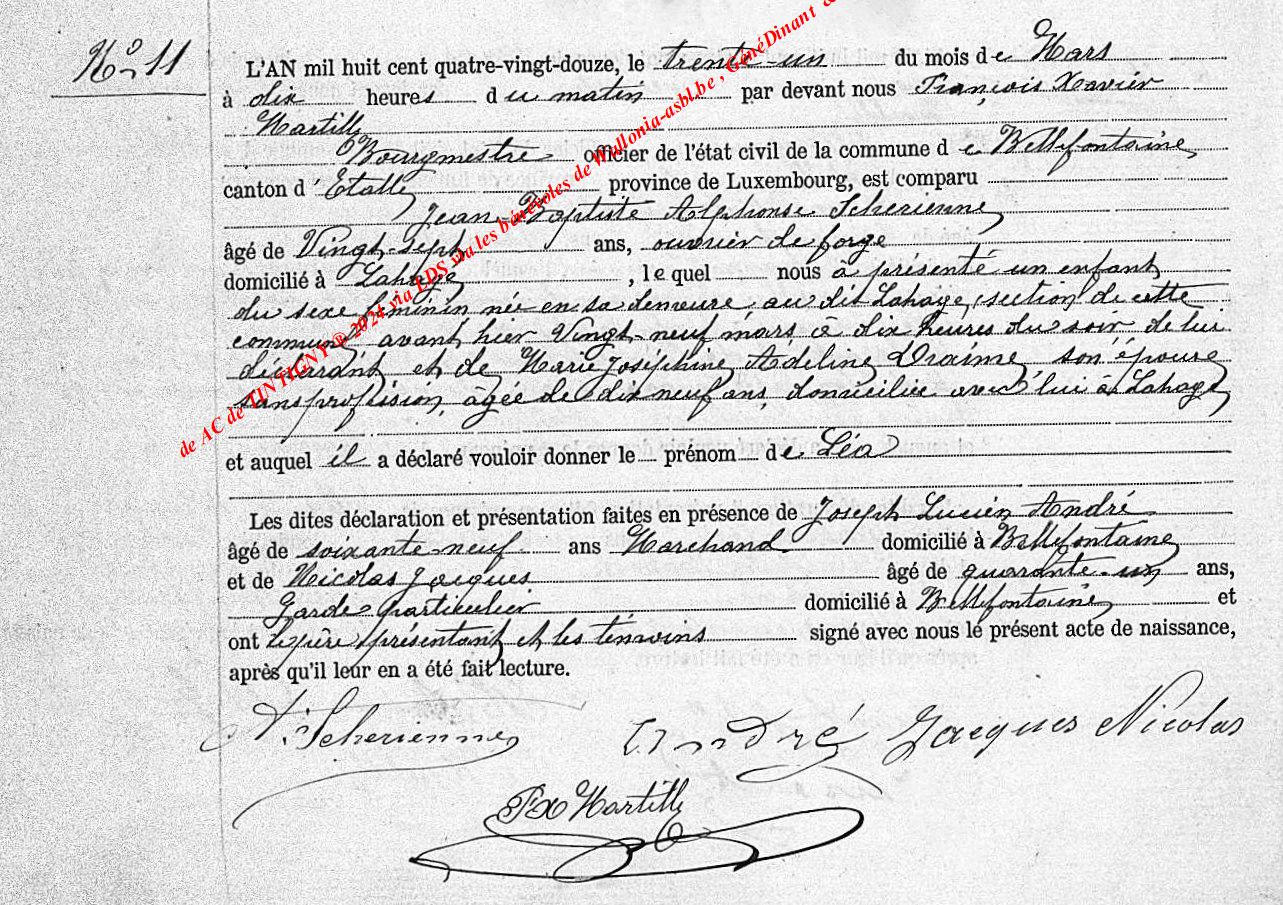 No 11
L'AN mil huit cent quatre-vingt-douze, le trente-un du mois de Mars
à dix heures du matin par devant nous François Xavier
Martilly
Bourgmestre officier de l'état civil de la commune de Bellefontaine,
canton d'Etalle province de Luxembourg, est comparu
Jean-Baptiste Alphonse Scherienne,
âgé de Vingt-sept ans, ouvrier de forge
domicilié à Lahage, lequel nous à présenté un enfant
du sexe féminin née en sa demeure, au dit Lahage, section de cette
commune, avant hier Vingt-neuf mars, à dix heures du soir de lui
déclarant et de Marie Joséphine Adeline Draime, son épouse
sans profession, âgée de dix neuf ans, domiciliée avec lui à Lahage,
et auquel il a déclaré vouloir donner le prénom de Léa
Les dites déclaration et présentation faites en présence de Joseph Lucien André
âgé de soixante neuf ans Marchand domicilié à Bellefontaine
et de Nicolas Jacques âgé de quarante-un ans,
Garde particulier domicilié à Bellefontaine, et
ont le père présentant et les témoins signé avec nous le présent acte de naissance,
après qu'il leur en a été fait lecture.
A. Scherienne André Jacques Nicolas
Fx Martilly
de AC de TINTIGNY ® 2024 via EDS via les bénévoles de Wallonia-asbl.be, GénéDinant &